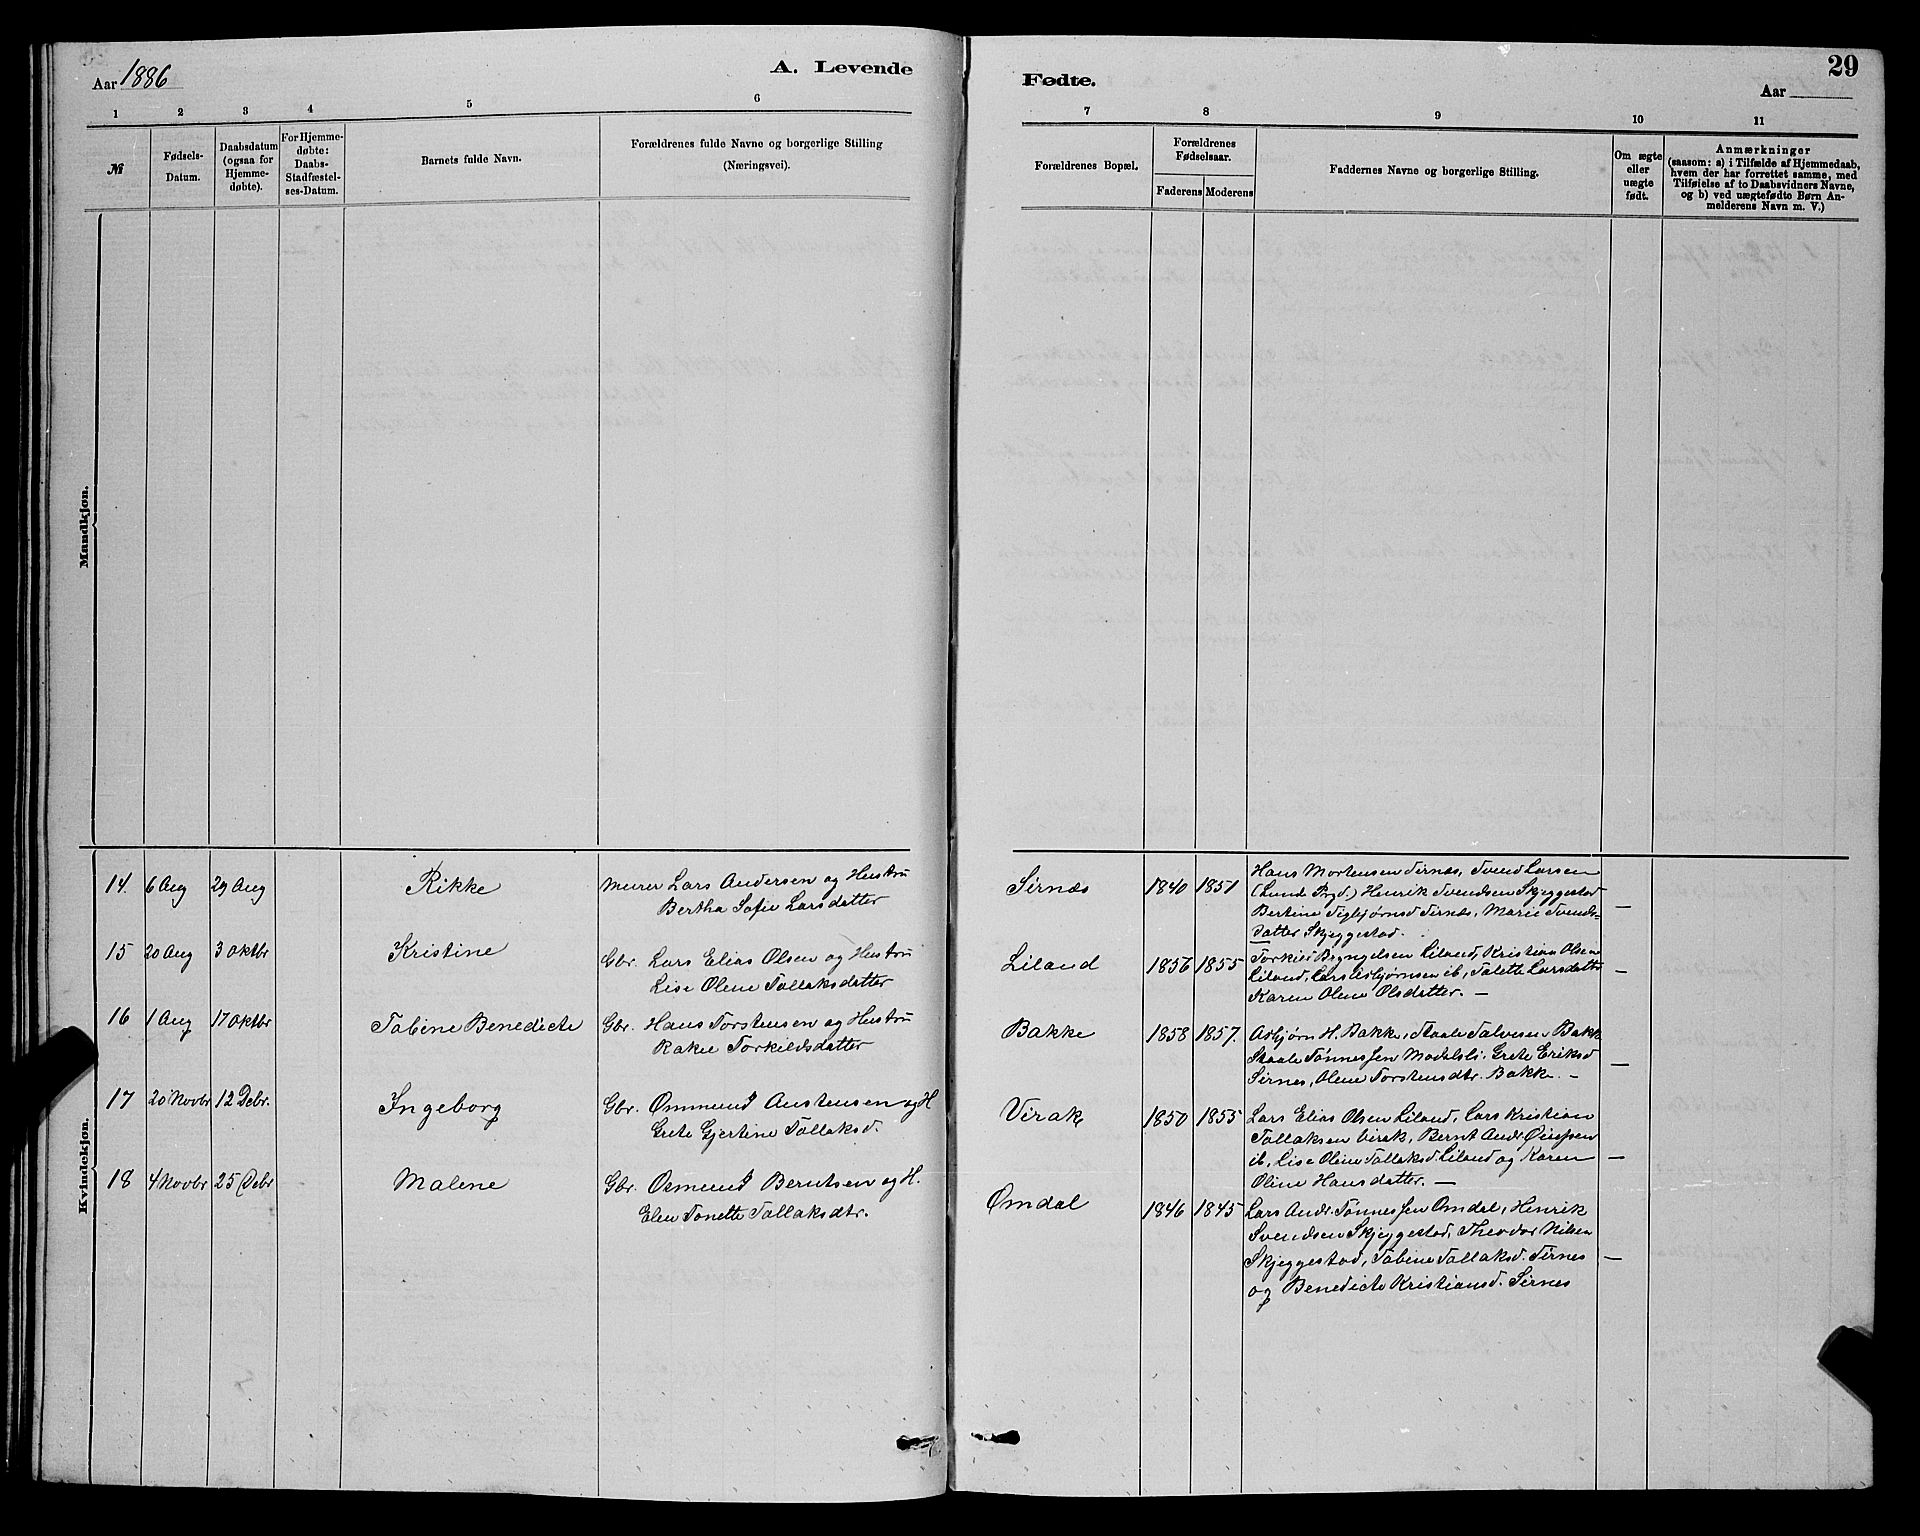 Aar 1886
A. Levende
Fødte.
29
Aar
1 2 3 4 5 6 7 8 9 10 11
№
Fødsels-
Datum.
Daabsdatum
(ogsaa for
Hjemme-
døbte).
For Hjemme-
døbte:
Daabs-
Stadfæstel-
ses-Datum.
Barnets fulde Navn.
Forældrenes fulde Navne og borgerlige Stilling
(Næringsvei).
Forældrenes Bopæl.
Forældrenes
Fødselsaar.
Faderens Moderens
Faddernes Navne og borgerlige Stilling.
Om ægte
eller
uægte
født.
Anmærkninger
(saasom: a) i Tilfælde af Hjemmedaab,
hvem der har forrettet samme, med
Tilføielse af to Daabsvidners Navne,
og b) ved uægtefødte Børn An-
melderens Navn m. V.)
Mandkjøn.
Kvindekjøn.
14. 6 Aug 29 Aug Rikke
Murer Lars Andersen og Hustru
Bertha Sofie Larsdatter
Sirnæs 1840 1851
Hans Mortensen Sirnæs, Svend Larsen
(Lunde Prgd.) Henrik Svendsen Skjeggestad
Bertine Sigbjørnsd Sirnæs, Marie Svends-
datter Skjeggestad. —
15 20 Aug 3 Oktbr Kristine
Gbr. Lars Elias Olsen og Hustru
Lise Olene Tollaksdatter
Liland 1856 1855
Torkild Bryngelsen Liland, Kristian Olsen
Liland, Lars Asbjørnsen ib, Talette Larsdatter
Karen Olene Olsdatter. — —
16 1 Aug 17 Oktbr Tobine Benedicte
Gbr. Hans Torstensen og Hustru
Rakel Torkildsdatter
Bakke 1858 1857.
Asbjørn H. Bakke, Staale Salvesen Bakke
Staale Tønnessen Modalsli, Grete Eriksd
Sirnes, Olene Torstensdtr. Bakke. — —
17 20 Novbr 12 Debr. Ingeborg
Gbr. Ommund Austensen og H
Grete Gjertine Tollaksd.
Virak 1850 1855
Lars Elias Olsen Liland, Lars Kristian
Tollaksen Virak, Bernt Andr.
ib, Lise Oline Tollaksd. Liland og Karen
Oline Hansdatter. — —
18 4 Novbr 25 Debr Malene
Gbr. Osmund Berntsen og H.
Elen Tonette Tollaksdtr.
Omdal 1846 1845
Lars Andr. Tønnessen Omdal, Henrik
Svendsen Skjeggestad, Theodor Nilsen
Skjeggestad, Tobine Tollaksd. Sirnes —
og Benedicte Kristiansd. Sirnes